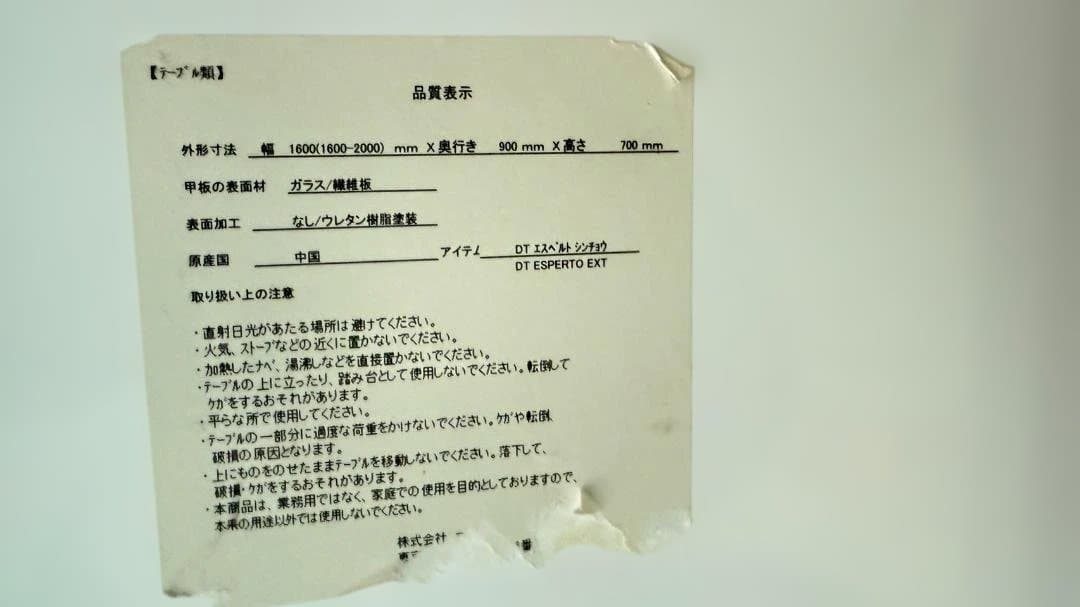 【ﾃｰﾌﾞﾙ類】
品質表示
外形寸法 幅 1600(1600-2000) mm X 奥行き 900 mm X 高さ 700 mm
甲板の表面材 ガラス/繊維板
表面加工 なし/ウレタン樹脂塗装
原産国 中国 アイテム DT ｴｽﾍﾟﾙﾄ ｼﾝﾁｮｳ
DT ESPERTO EXT
取り扱い上の注意
・直射日光があたる場所は避けてください。
・火気、ｽﾄｰﾌﾞなどの近くに置かないでください。
・加熱したナベ、湯沸しなどを直接置かないでください。
・ﾃｰﾌﾞﾙの上に立ったり、踏み台として使用しないでください。転倒して
ｹｶﾞをするおそれがあります。
・平らな所で使用してください。
・ﾃｰﾌﾞﾙの一部分に過度な荷重をかけないでください。ｹｶﾞや転倒、
破損の原因となります。
・上にものをのせたままﾃｰﾌﾞﾙを移動しないでください。落下して、
破損・ｹｶﾞをするおそれがあります。
・本商品は、業務用ではなく、家庭での使用を目的としておりますので、
本来の用途以外では使用しないでください。
株式会社